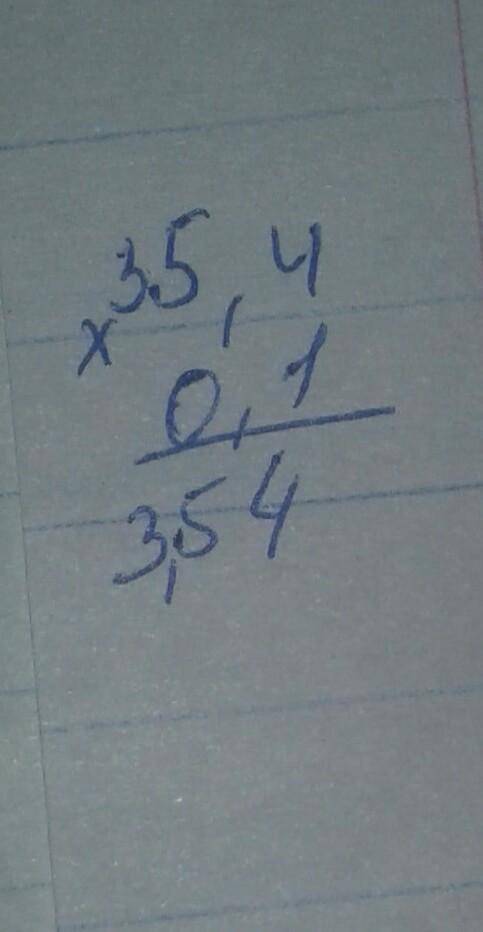 35,4
x
0,1
3,54